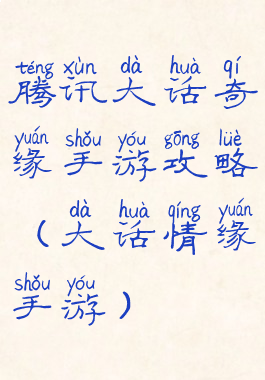 téng xùn dà huà qí
腾讯大话奇
yuán shǒu yóu gōng lüè
缘手游攻略
dà huà qíng yuán
（大话情缘
shǒu yóu
手游）